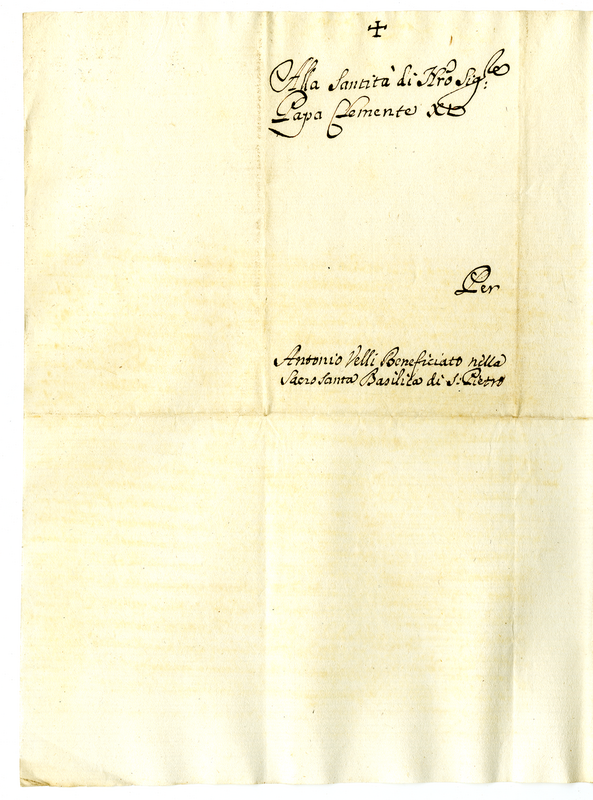 ✠
Alla Santità di Nro Sig.re
Papa Clemente XI
Per
Antonio Velli Beneficiato nella
Sacrosanta Basilica di S. Pietro